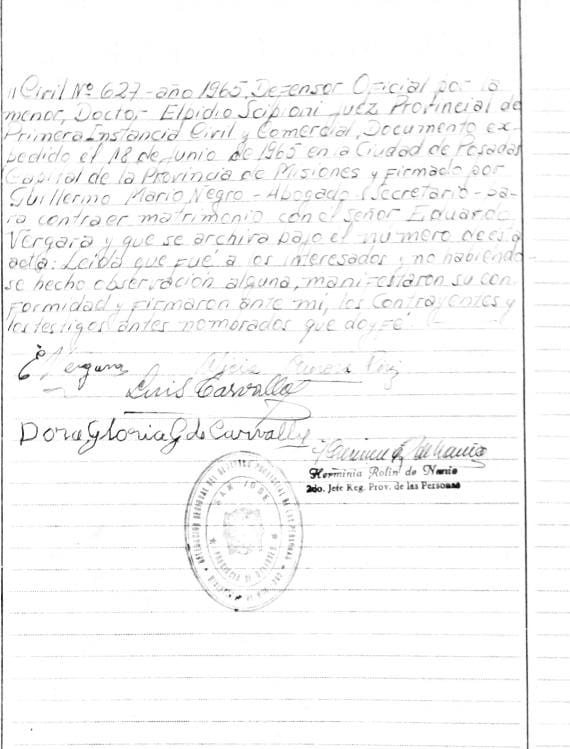 " Civil Nº 627 - año 1965, Defensor Oficial por la
menor, Doctor Elpidio Scipioni Juez Provincial de
Primera Instancia Civil y Comercial, Documento ex-
pedido el 18 de Junio de 1965 en la Ciudad de Posadas
Capital de la Provincia de Misiones y Firmado por
Guillermo Mario Negro - Abogado Secretario - pa-
ra contraer matrimonio con el señor Eduardo
Vergara y que se archiva bajo el numero de esta
acta: Leída que fué a los interesados y no habiendo-
se hecho observación alguna, manifestaron su con-
formidad y firmaron ante mi, los contrayentes y
los testigos antes nomorados que doy fé.
E. Vergara
Luis Carvallo
Dora Gloria G de Carvallo
Herminia Rolin de Nanio
2do. Jefe Reg. Prov. de las Personas
SAN JOSE
PROVINCIA DE MISIONES